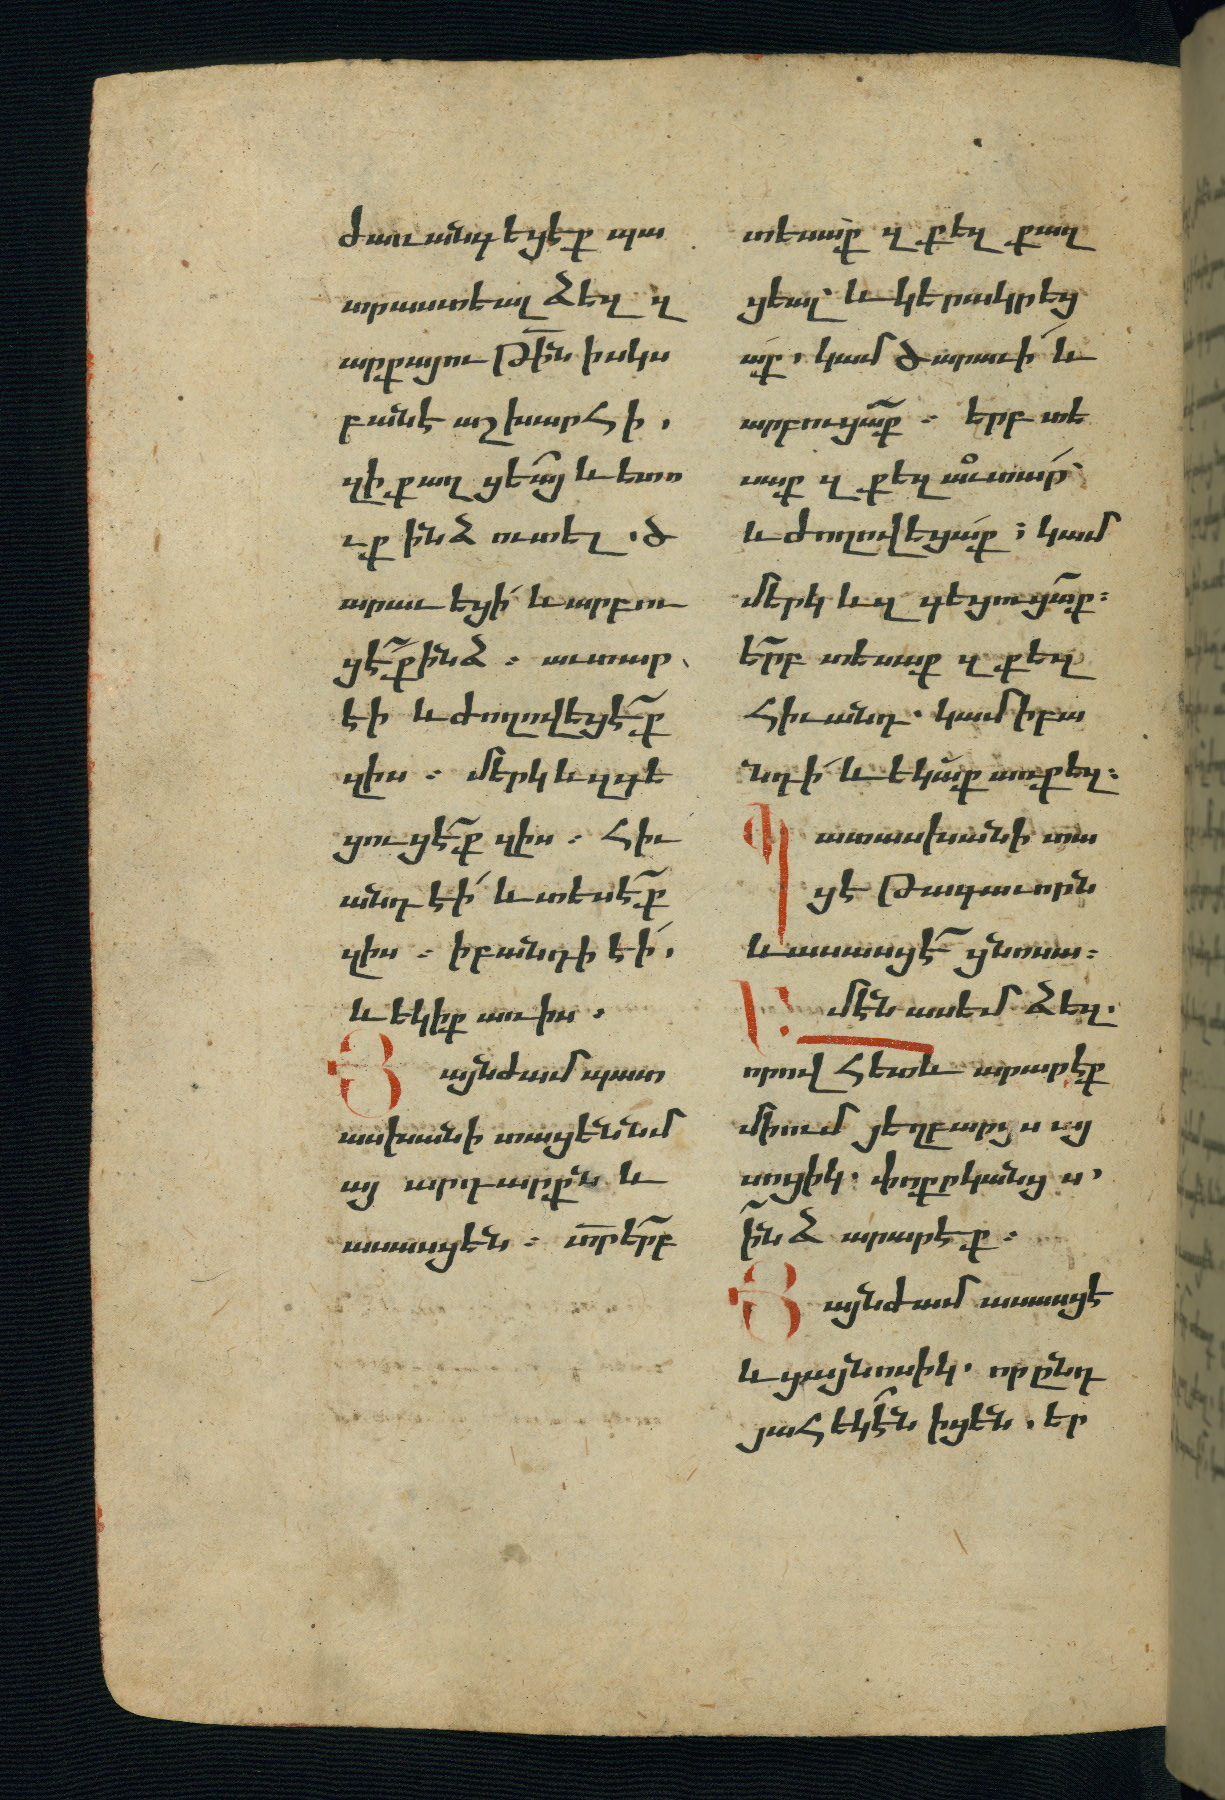 ժառանգեցէք պա
տրաստեալ ձեզ զ
արքայութի̅ն իսկս
բանէ աշխարհի,
զի քաղցեա՜յ և ետո
ւք ինձ ուտել . ծ
արաւեցի՛ և արբու
ցէ՜ք ինձ ։ աւտար՝
էի և ժողովեցէ՜ք
զիս ։ մերկ և զգե
ցուցէ՜ք զիս ։ հիւ
անդ էի՛ և տեսէ՜ք
զիս ։ ի բանդի էի՛,
և եկիք առ իս .
Յայնժամ պատ
ասխանի տացեն նմ
այ արդարքն և
ասասցեն ։ տ̅ր ե՜րբ
տեսաք զքեզ քաղ
ցեալ՝ և կերակրեց
աք, կամ ծարաւի՛ և
արբուցա՜ք ։ երբ տե
սաք զքեզ աւտար՝
և ժողովեցա՛ք ; կամ
մերկ և զգեցուցա՜ք ։
ե՜րբ տեսաք զքեզ
հիւանդ . կամ ի բա
նդի՛ և եկա՜ք առ քեզ ։
Պատասխանի տա
ցէ թագաւորն
և ասասցէ՜ ցնոսա ։
Ամէն ասեմ ձեզ .
որովհետև արարէք
միում յեղբարցս այ
սոցիկ . փոքրկանցս,
ի՜նձ արարէք ։
Յայնժամ ասասցէ
և ցայնոսիկ . որ ընդ
յահեկէ՜ն իցեն, եր